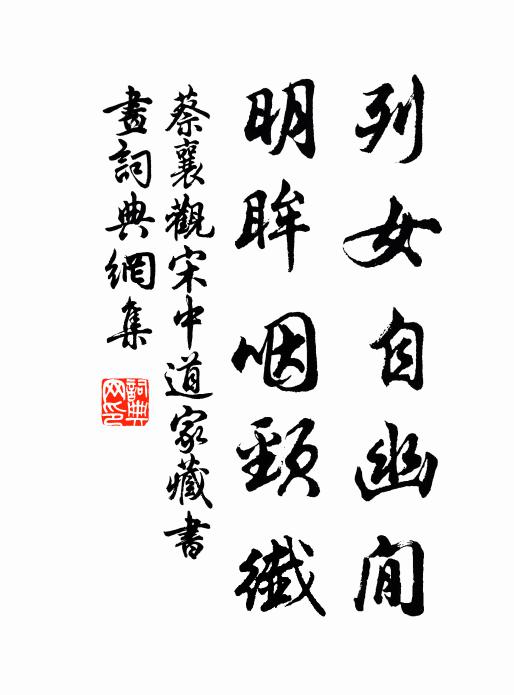 列女自幽閒
明眸咽頸纖
蔡襄觀宋中道家藏書
畫詞典網集
詞典网印